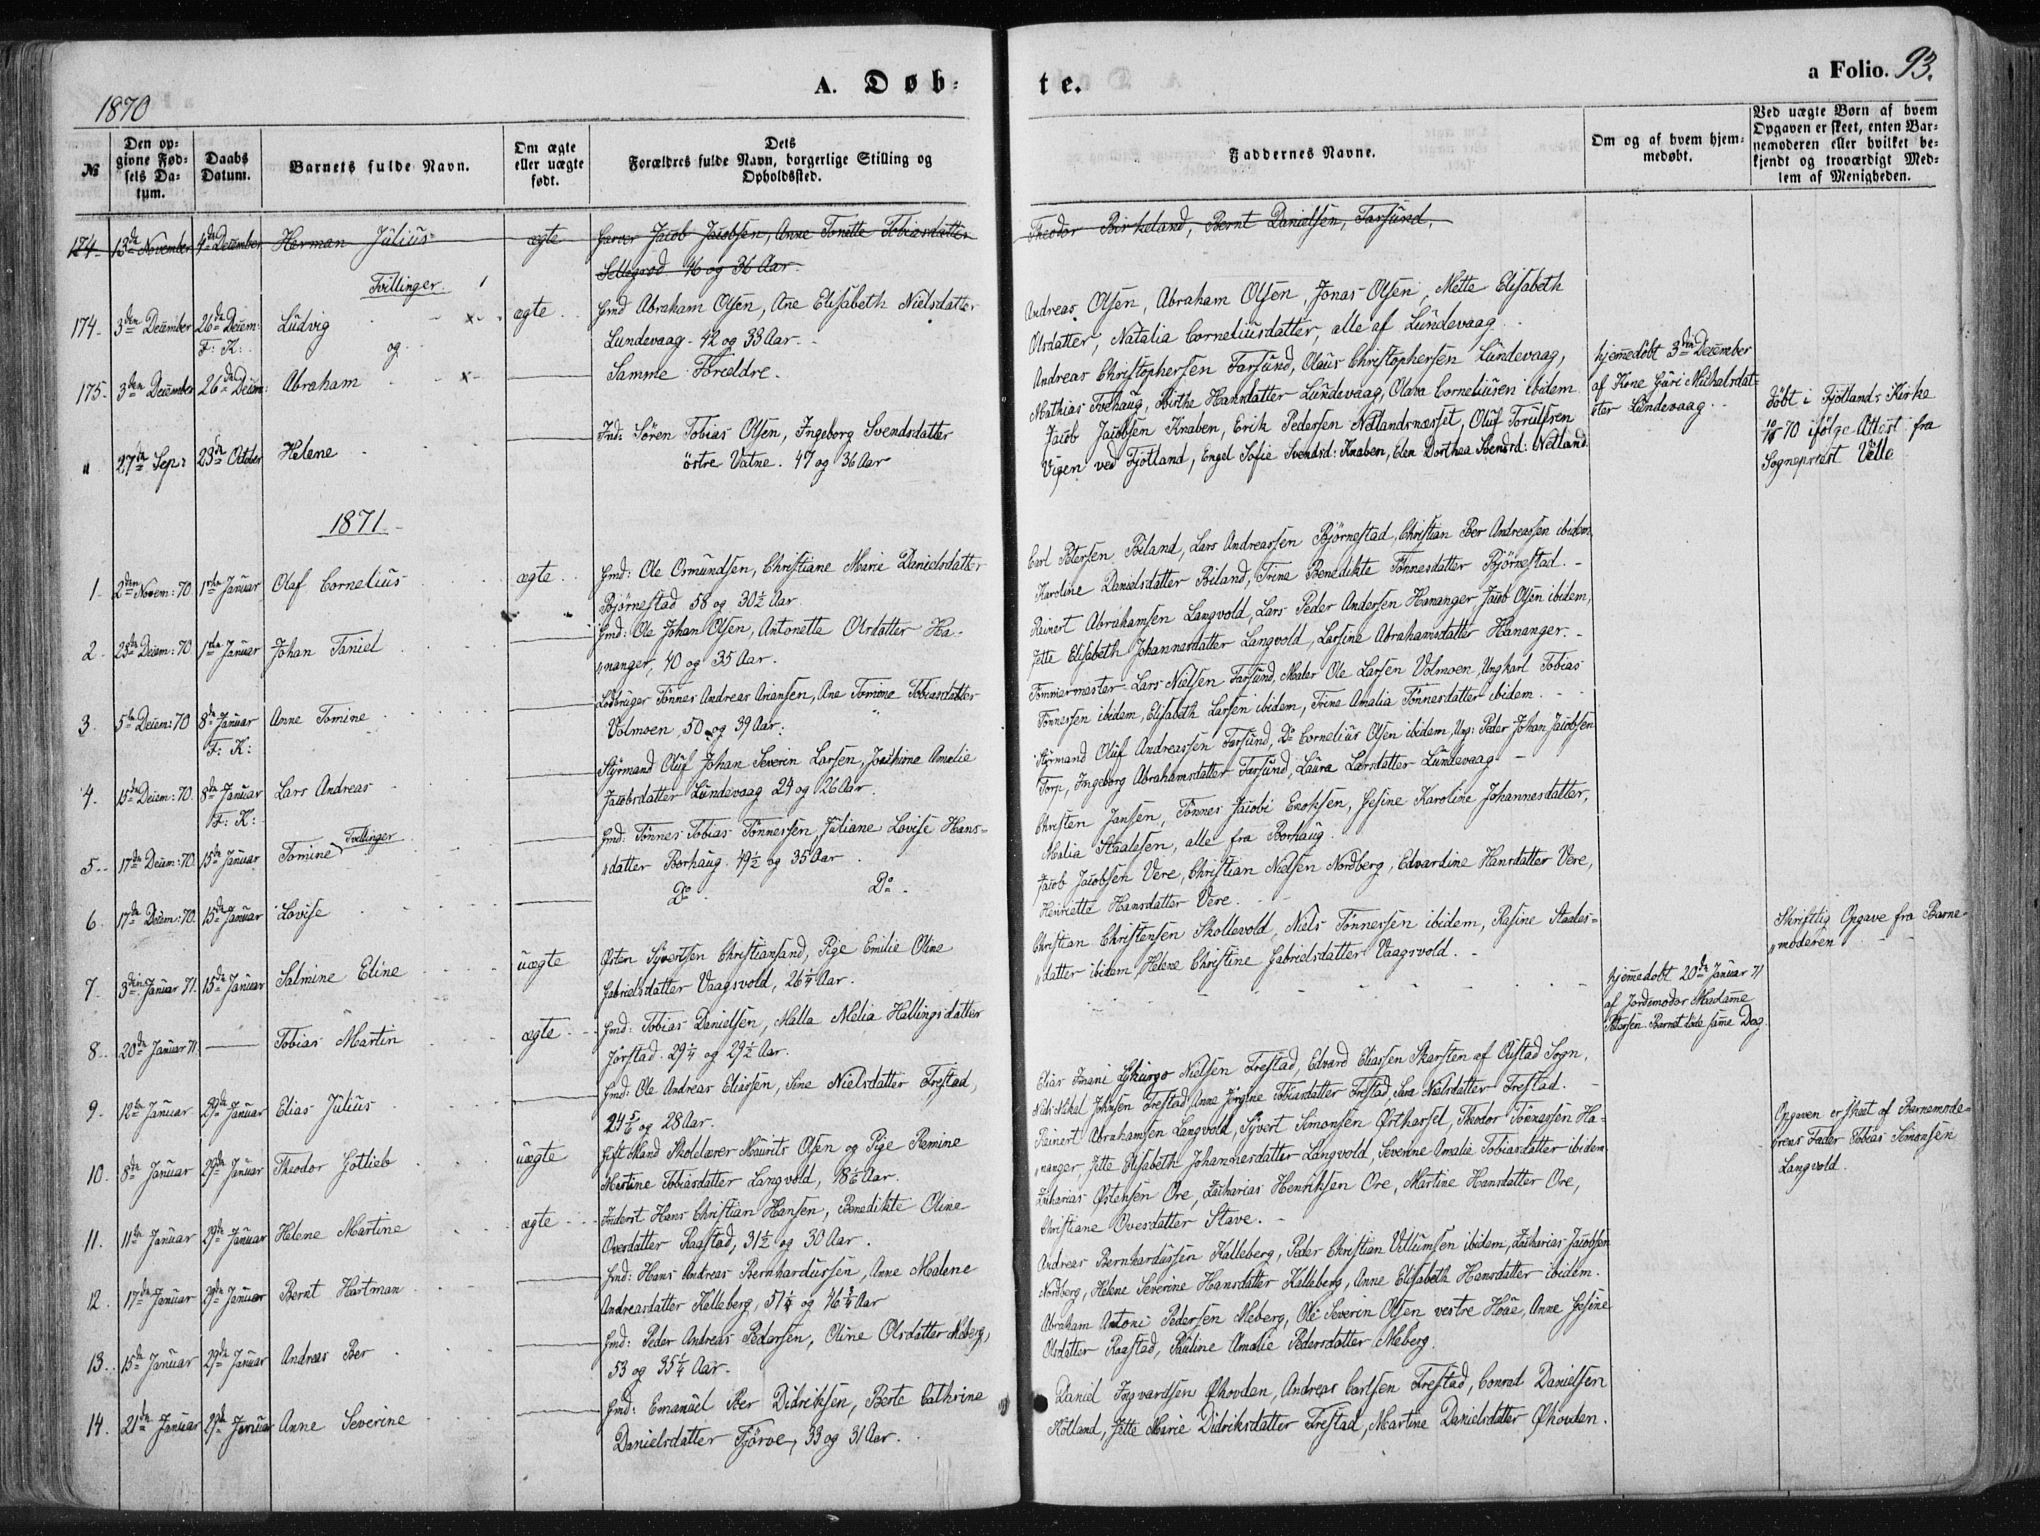 A. Døb-
te.
a Folio. 93.
1870
№
Den op-
givne Fød-
sels Da-
tum.
Daabs
Datum.
Barnets fulde Navn.
Om ægte
eller uægte
født.
Dets
Forældres fulde Navn, borgerlige Stilling og
Opholdssted.
Faddernes Navne.
Om og af hvem hjem-
medøbt.
Ved uægte Børn af hvem
Opgaven er skeet, enten Bar-
nemoderen eller hvilket be-
kjendt og troværdigt Med-
lem af Menigheden.
174. 13de November 4de December Herman Julius ægte Garver Jacob Jacobsen, Anne Tonette Tobiasdatter
Sellegrod 46 og 36 Aar.
Theodor Birkeland, Bernt Danielsen, Farsund.
Tvillinger
174. 3den December 26de Decem: Ludvig ægte Gmd Abraham Olsen, Ane Elisabeth Nielsdatter
F: K: og Lundevaag - 42 og 33 Aar.
Andreas Olsen, Abraham Olsen, Jonas Olsen, Mette Elisabeth
Olsdatter, Natalia Corneliusdatter, alle af Lundevaag.
175. 3den December 26de Decem: Abraham Samme Forældre.
Andreas Christophersen Farsund, Olaus Christophersen Lundevaag,
Mathias Tvehaug, Birthe Hansdatter Lundevaag, Olava Corneliusen ibidem
hjemmedöbt 3den December
af Kone Guri Michalsdat-
ter Lundevaag.
" 27de Sep: 23de October Helene Ind: Sören Tobias Olsen, Ingeborg Svendsdatter
östre Vatne. 47 og 36 Aar
Jacob Jacobsen Knaben, Erik Pedersen Netlandsnæsset, Oluf Torulfsen
Vigen ved Fjotland, Engel Sofie Svendsd: Knaben, Elen Dorthea Svendsd: Netland
döbt i Fjotlands Kirke
70 ifölge Attest fra
Sogneprest Velle
1871
1. 2den Novem: 70 1ste Januar Olaf Cornelius ægte Gmd: Ole Osmundsen, Christiane Marie Danielsdatter
Björnestad 58 og 30½ Aar
Carl Petersen Biland, Lars Andreassen Björnestad, Christian Ber Andreassen ibidem,
Karoline Danielsdatter Biland, Trine Benedikte Tönnesdatter Björnestad.
2. 23de Decem: 70 1ste Januar Johan Taniel Gmd: Ole Johan Olsen, Antonette Olsdatter Ha-
nanger, 40 og 35 Aar.
Reinert Abrahamsen Langvold, Lars Peder Andersen Hananger Jacob Olsen ibidem,
Jette Elisabeth Johannesdatter Langvold, Larsine Abrahamsdatter Hananger.
3. 5te Decem: 70 8de Januar Anne Tomine Lodbruger Tönnes Andreas Ariansen, Ane Tomine Tobiasdatter
F: K: Volmoen, 50 og 39 Aar.
Tömmermester Lars Nielsen Farsund, Maler Ole Larsen Volmoen, Ungkarl Tobias
Tönnessen ibidem, Elisabeth Larsen ibidem, Trine Amalia Tönnesdatter ibidem.
4. 15de Decem: 70. 8de Januar Lars Andreas Styrmand Oluf Johan Severin Larsen, Joachime Amelie
F: K: Jacobsdatter Lundevaag 24 og 26 Aar.
Styrmand Oluf Andreassen Farsund, Do Cornelius Olsen ibidem, Ung: Peder Johan Jacobsen
Torp, Ingeborg Abrahamsdatter Farsund, Laura Larsdatter Lundevaag
Tvillinger
5. 17de Decem: 70. 15de Januar Tomine Gmd: Tönnes Tobias Tönnessen, Juliane Lovise Hans-
datter Borhaug. 49½ og 35 Aar
Christen Jansen, Tönnes Jacobi Enoksen, Gesine Karoline Johannesdatter,
Malia Staalesen, alle fra Borhaug.
6. 17de Decem: 70. 15de Januar Lovise Do Do
Jacob Jacobsen Vere, Christian Nielsen Nordberg, Edvardine Hansdatter Vere,
Henriette Hansdatter Vere.
7. 3die Januar 71. 15de Januar Salmine Eline uægte Østen Syvertsen Christiansand, Pige Emilie Oline
Gabrielsdatter Vaagsvold, 26¼ Aar.
Christian Christensen Skollevold, Niels Tönnersen ibidem, Rasine Staales-
datter ibidem, Helene Christine Gabrielsdatter Vaagsvold.
Skriftlig Opgave fra Barne-
moderen
8. 20de Januar 71. Tobias Martin ægte Gmd: Tobias Danielsen, Malla Melia Hallingsdatter
Jörstad. 29¼ og 29½ Aar.
hjemmedöbt 20de Januar 71
af Jordemoder Madame
Petersen Barnet döde samme Dag.
9. 12te Januar 29de Januar Elias Julius Gmd: Ole Andreas Eliassen, Sine Nielsdatter Frestad,
24 5/6 og 28 Aar.
Elias Imani Lykurgo Nielsen Frestad, Edvard Eliassen Skarsten af Oustad Sogn,
Nils Mikel Johnsen Frestad, Anne Jörgine Tobiasdatter Frestad, Sara Nielsdatter Frestad.
10. 8de Januar 29de Januar Theodor Gotlieb uægte Gift Mand Skolelærer Maurits Olsen og Pige Bemine
Martine Tobiasdatter Langvold, 18 1/6 Aar.
Reinert Abrahamsen Langvold, Syvert Simonsen Østhassel, Theodor Tönnessen Ha-
nanger Jette Elisabeth Johannesdatter Langvold, Severine Amalia Tobiasdatter ibidem.
Opgaven er skeet af Barnemode-
rens Fader Tobias Simonsen
Langvold.
11. 11te Januar 29de Januar Helene Martine ægte Inderst Hans Christian Hansen, Benedikte Oline
Ovesdatter Raastad, 31½ og 30 Aar.
Zacharias Østensen Ore, Zacharias Henriksen Ore, Martine Hansdatter Ore,
Christiane Ovesdatter Stave.
12. 17de Januar 29de Januar Bernt Hartman Gmd: Hans Andreas Bernhardussen, Anne Malene
Andreasdatter Kalleberg, 51¼ og 46¾ Aar
Andreas Bernhardussen Kalleberg, Peder Christian Villumsen ibidem, Zacharias Jacobsen
Nordberg, Helene Severine Hansdatter Kalleberg, Anne Elisabeth Hansdatter ibidem.
13. 15de Januar 29de Januar Andreas Ber Gmd: Peder Andreas Pedersen, Oline Olsdatter Meberg,
53 og 35¼ Aar.
Abraham Antoni Pedersen Meberg, Ole Severin Olsen vestre Houe, Anne Gesine
Olsdatter Raastad, Pauline Amalie Pedersdatter Meberg.
14. 21de Januar 29de Januar Anne Severine Gmd: Emanuel Ber Didriksen, Berte Cathrine
Danielsdatter Fjörve, 33 og 31 Aar.
Daniel Ingvardsen Øhovden, Andreas Carlsen Frestad, Conrad Danielsen
Kolland, Jette Marie Didriksdatter Frestad, Martine Danielsdatter Øhovden.